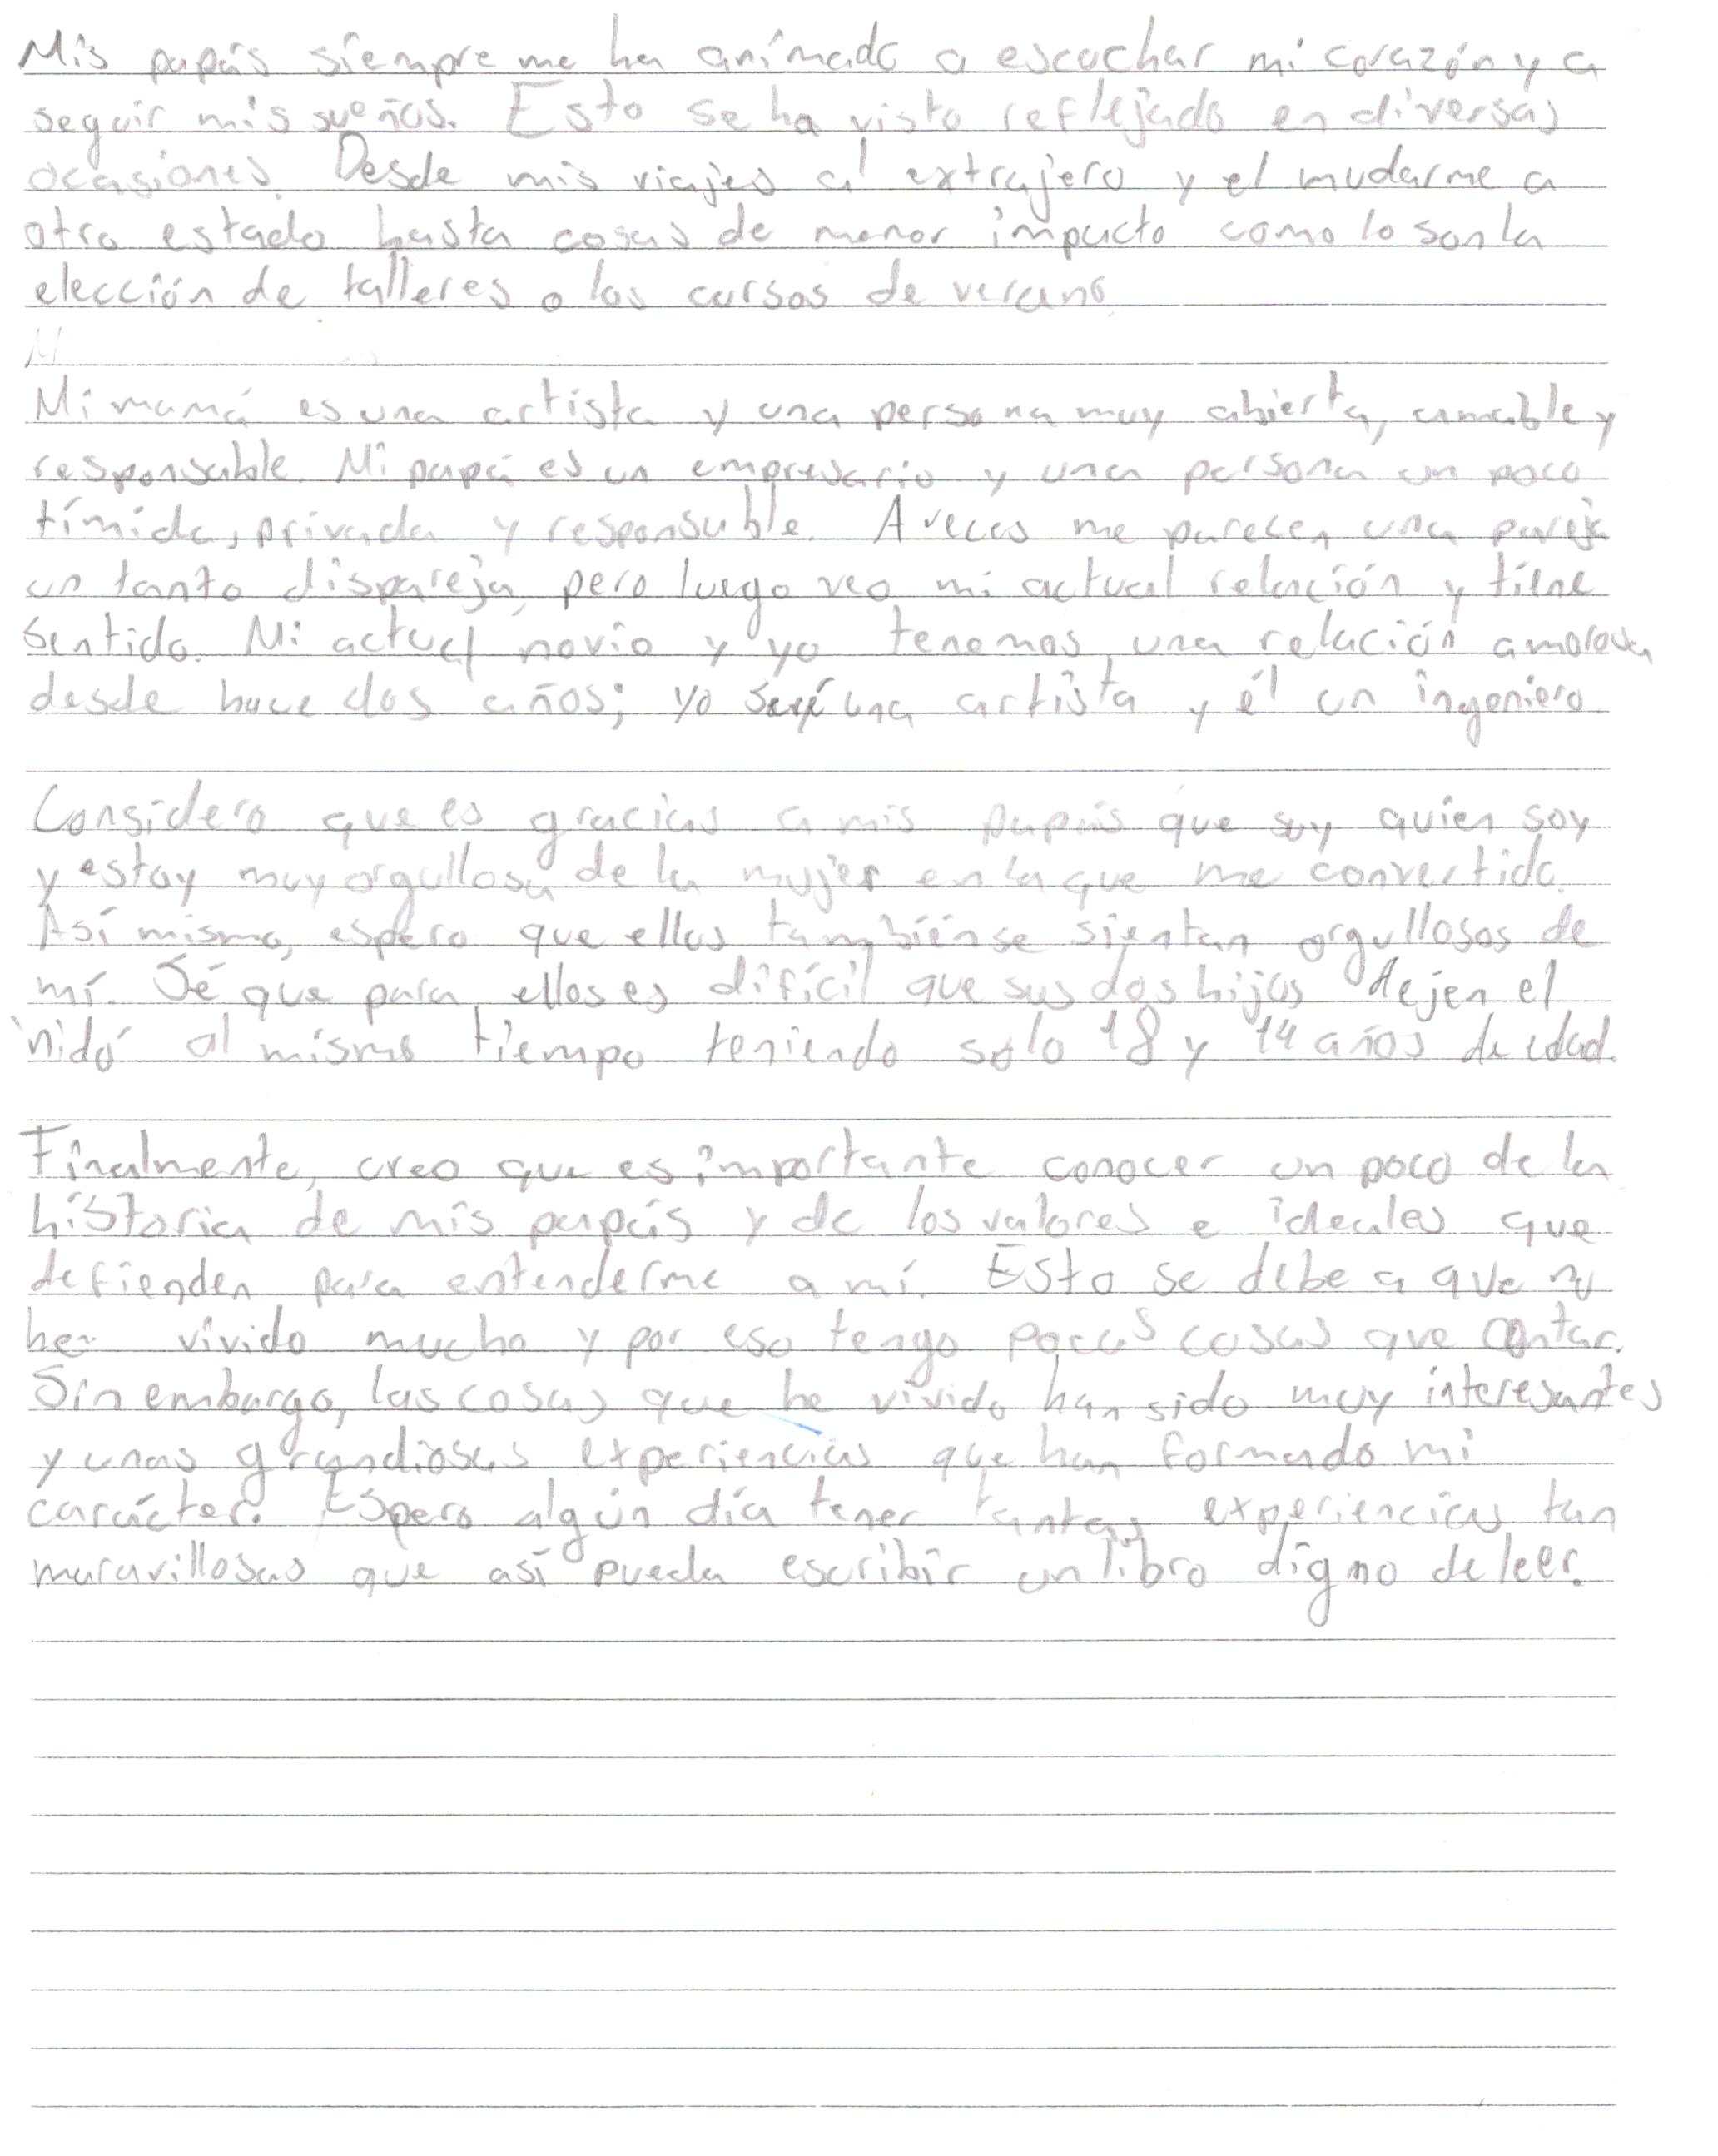 Mis papás siempre me ha animado a escuchar mi corazón y a
seguir mis sueños. Esto se ha visto reflejado en diversas
ocasiones. Desde mis viajes al extrajero y el mudarme a
otro estado hasta cosas de menor impacto como lo son la
elección de talleres o los cursos de verano
M
Mi mamá es una artista y una persona muy abierta, amable y
responsable. Mi papá es un empresario y una persona un poco
tímida, privada y responsable. A veces me parecen una pareja
un tanto dispareja, pero luego veo mi actual relación y tiene
sentido. Mi actual novio y yo tenemos una relación amorosa
desde hace dos años; yo seré una artista y él un ingeniero.
Considero que es gracias a mis papás que soy quien soy
y estoy muy orgullosa de la mujer en la que me convertido.
Así mismo, espero que ellos también se sientan orgullosos de
mí. Sé que para ellos es difícil que sus dos hijas dejen el
'nido' al mismo tiempo teniendo solo 18 y 14 años de edad.
Finalmente, creo que es importante conocer un poco de la
historia de mis papás y de los valores e ideales que
defienden para entenderme a mí. Esto se debe a que no
he vivido mucho y por eso tengo pocas cosas que contar.
Sin embargo, las cosas que he vivido han sido muy interesantes
y unas grandiosas experiencias que han formado mi
carácter. Espero algún día tener tantas experiencias tan
maravillosas que así pueda escribir un libro digno de leer.